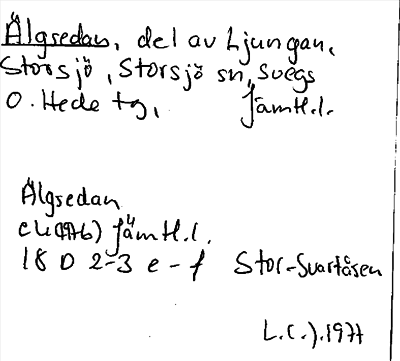 Älgsedan, del av Ljungan,
Storsjö, Storsjö sn, Svegs
o. Hede tg, Jämtl.l.
Älgsedan
ek (1976) Jämtl.l.
18 D 2-3 e-f Stor-Svartåsen
1977